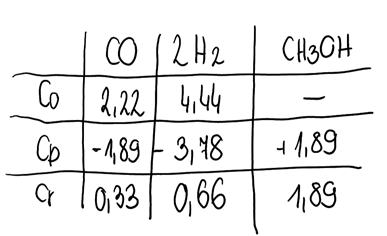 CO 2H2 CH3OH
Co 2,22 4,44 —
Cp -1,89 - 3,78 +1,89
Cr 0,33 0,66 1,89